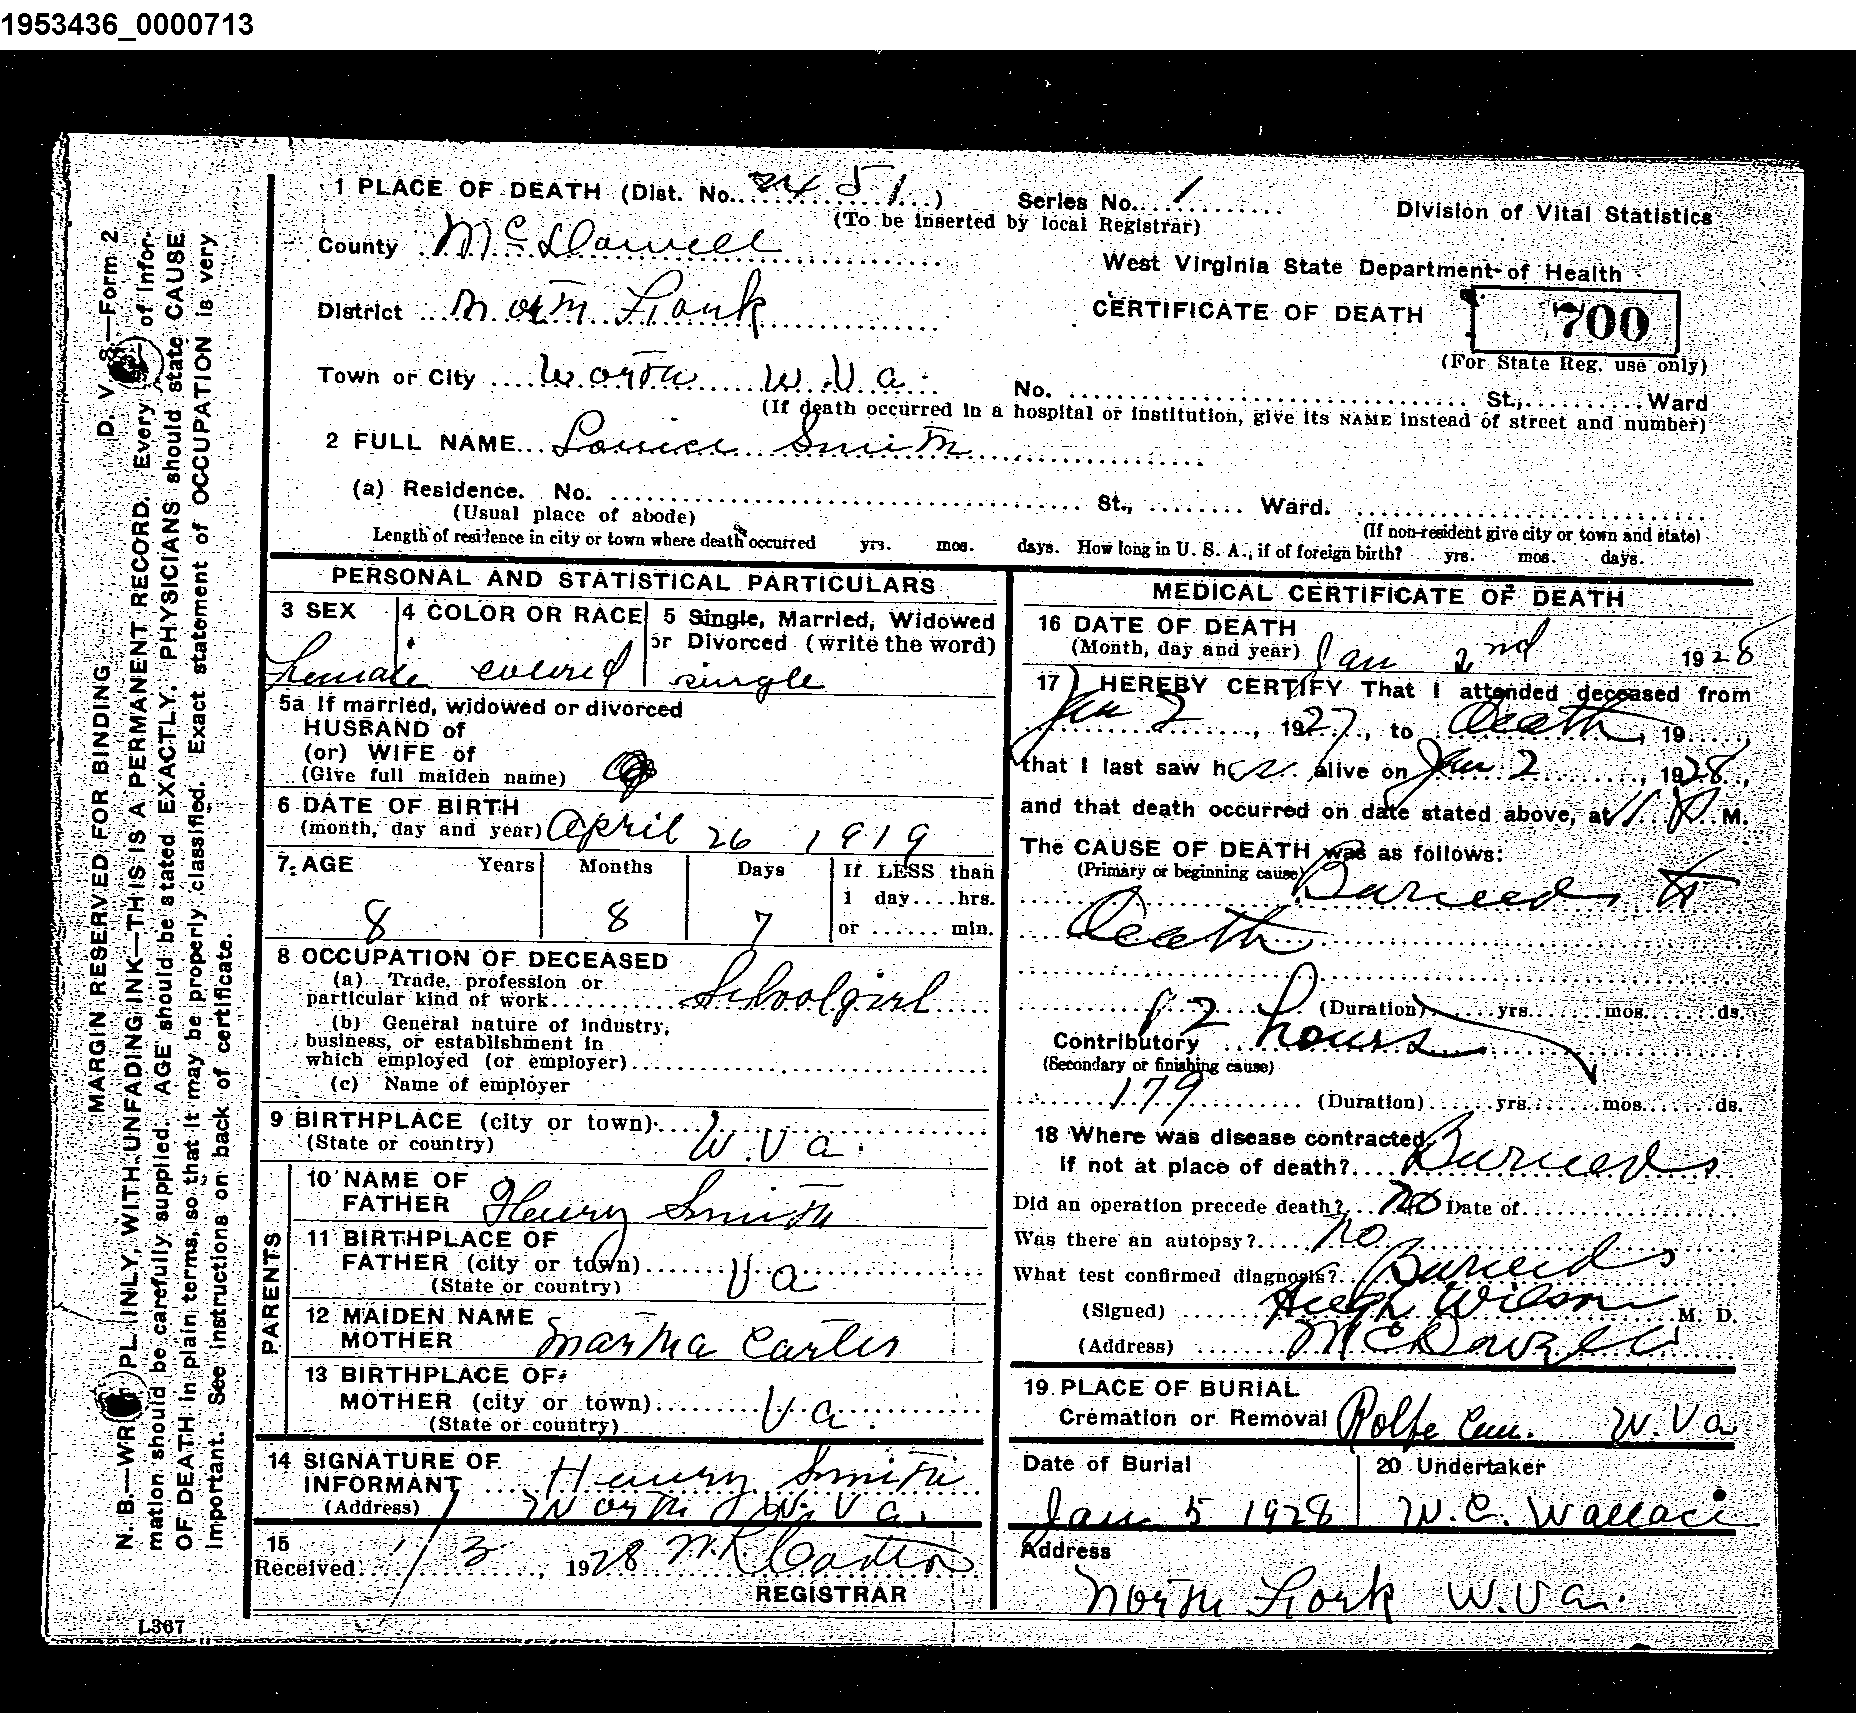 1953436_0000713
1 PLACE OF DEATH (Dist. No. 2451) Series No. 1
(To be inserted by local Registrar)
Division of Vital Statistics
County McDowell
West Virginia State Department of Health
District North Fork
CERTIFICATE OF DEATH
700
(For State Reg. use only)
Town or City Worth W.Va.
No. St., Ward
(If death occurred in a hospital or institution, give its NAME instead of street and number)
2 FULL NAME Smith
(a) Residence. No. St., Ward.
(Usual place of abode) (If non-resident give city or town and state)
Length of residence in city or town where death occurred yrs. mos. days. How long in U. S. A., if of foreign birth? yrs. mos. days.
PERSONAL AND STATISTICAL PARTICULARS
3 SEX 4 COLOR OR RACE 5 Single, Married, Widowed
or Divorced (write the word)
Female colored single
5a If married, widowed or divorced
HUSBAND of
(or) WIFE of
(Give full maiden name)
6 DATE OF BIRTH
(month, day and year) April 26 1919
7. AGE Years Months Days If LESS than
1 day....hrs.
8 8 7 or ...... min.
8 OCCUPATION OF DECEASED
(a) Trade, profession or
particular kind of work Schoolgirl
(b) General nature of industry,
business, or establishment in
which employed (or employer)
(c) Name of employer
9 BIRTHPLACE (city or town)
(State or country) W.Va.
PARENTS
10 NAME OF
FATHER Henry Smith
11 BIRTHPLACE OF
FATHER (city or town)
(State or country) Va
12 MAIDEN NAME
MOTHER Martha Carter
13 BIRTHPLACE OF
MOTHER (city or town)
(State or country) Va.
14 SIGNATURE OF
INFORMANT Henry Smith
(Address) Worth W.Va.
15
Received 1/3, 1928
REGISTRAR
MEDICAL CERTIFICATE OF DEATH
16 DATE OF DEATH
(Month, day and year) Jan 2nd 1928
17 I HEREBY CERTIFY That I attended deceased from
Jan 2, 1927, to Death, 19
that I last saw h alive on Jan 2, 1928,
and that death occurred on date stated above, at 11 P. M.
The CAUSE OF DEATH was as follows:
(Primary or beginning cause) Burned to
Death
(Duration) yrs. mos. ds.
12 hours
Contributory
(Secondary or finishing cause)
179 (Duration) yrs. mos. ds.
18 Where was disease contracted
if not at place of death? Burned
Did an operation precede death? No Date of
Was there an autopsy? No
What test confirmed diagnosis? Burned
(Signed) Hugh Wilson M. D.
(Address) McDowell
19 PLACE OF BURIAL
Cremation or Removal Rolfe Cem. W.Va
Date of Burial 20 Undertaker
Jan 5 1928 W.C. Wallace
Address
North Fork W.Va.
D. V. S.—Form 2
MARGIN RESERVED FOR BINDING
N. B.—WRITE PLAINLY, WITH UNFADING INK—THIS IS A PERMANENT RECORD. Every item of infor-
mation should be carefully supplied. AGE should be stated EXACTLY. PHYSICIANS should state CAUSE
OF DEATH in plain terms, so that it may be properly classified. Exact statement of OCCUPATION is very
important. See instructions on back of certificate.
L367